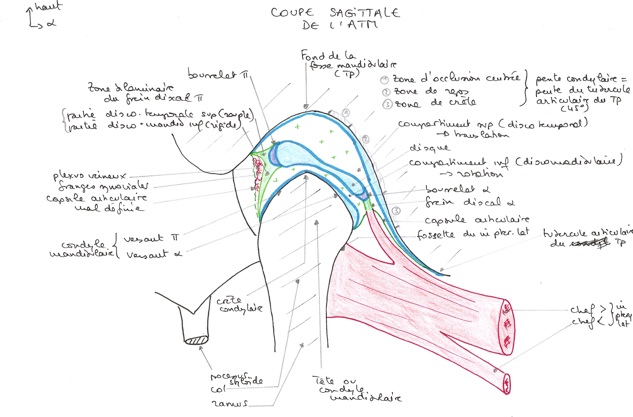 haut
α
COUPE SAGITTALE
DE L'ATM
Fond de la
fosse mandibulaire
(TP)
bourrelet π
zone bilaminaire
du frein discal π
partie disco-temporale sup (souple)
partie disco-mandib inf (rigide)
plexus veineux
franges synoviales
capsule articulaire
mal définie
condyle
mandibulaire
versant π
versant α
crête
condylaire
processus
styloïde
col
ramus
Tête ou
condyle
mandibulaire
① zone d'occlusion centrée
② zone de repos
③ zone de crête
pente condylaire =
pente du tubercule
articulaire du TP
(45°)
compartiment sup (disco temporal)
→ translation
disque
compartiment inf (discomandibulaire)
→ rotation
bourrelet α
frein discal α
capsule articulaire
fossette du m pter. lat
tubercule articulaire
du TP
chef >
chef <
m
pter
lat